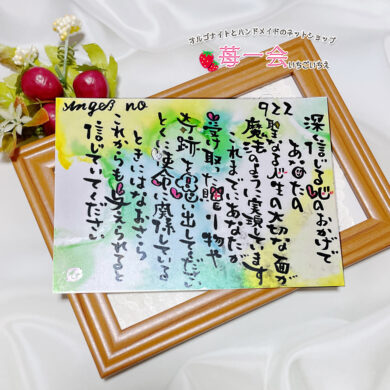 オルゴナイトとハンドメイドのネットショップ
苺一会
いちごいちえ
angel no
922
深く信じる心のおかげで
あなたの
聖なる人生の大切な面が
魔法のように実現しています
これまでにあなたが
受け取った贈り物や
奇跡を思い出してください
とくに使命に関係している
ときはなおさら
これからも与えられると
信じていてください